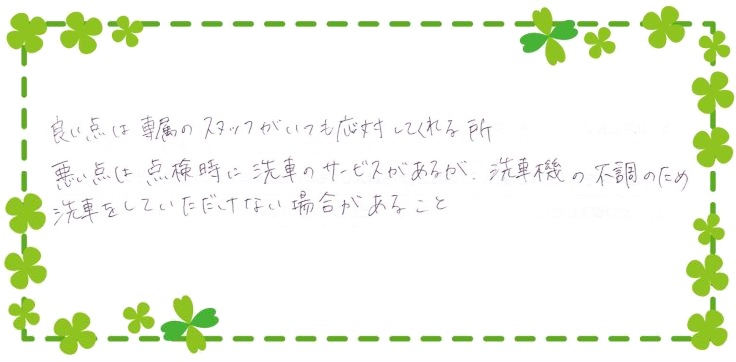 良い点は専属のスタッフがいつも応対してくれる所
悪い点は点検時に洗車のサービスがあるが、洗車機の不調のため
洗車をしていただけない場合があること